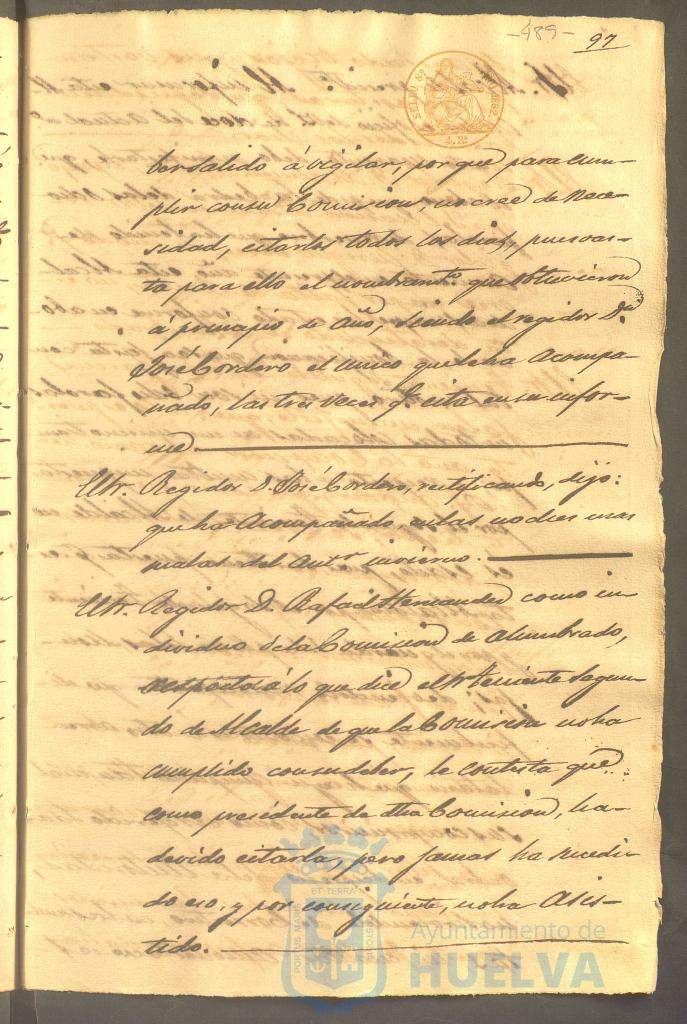 -489-
97
SELLO 9º AÑO 1862
4. Rs
ber salido á vigilar, por que para cum-
plir con su Comision, no creé de nece-
sidad, citarles todos los dias, pues vas-
ta para ello el nombramto. que obtuvieron
á principio de año, siendo el regidor Dn.
José Cordero el unico que le ha acompa-
ñado, las tres veces q.e cita en su infor-
me.
El Sr. Regidor D. José Cordero, rectificando, dijo:
que ha acompañado, en las noches mas
malas del antr. invierno.
El Sr. Regidor D. Rafael Hernandez como in-
dividuo de la Comision de alumbrado,
respecto á lo que dice el Sr. Teniente Segun-
do de Alcalde de que la Comision no ha
cumplido con su deber, le contesta que
como presidente de dha Comision, ha
devido citarla, pero jamas ha sucedi-
do eso, y por consiguiente, no ha asis-
tido.
PORTUS MARIS ET TERRA CUSTODIA
Ayuntamiento de
HUELVA